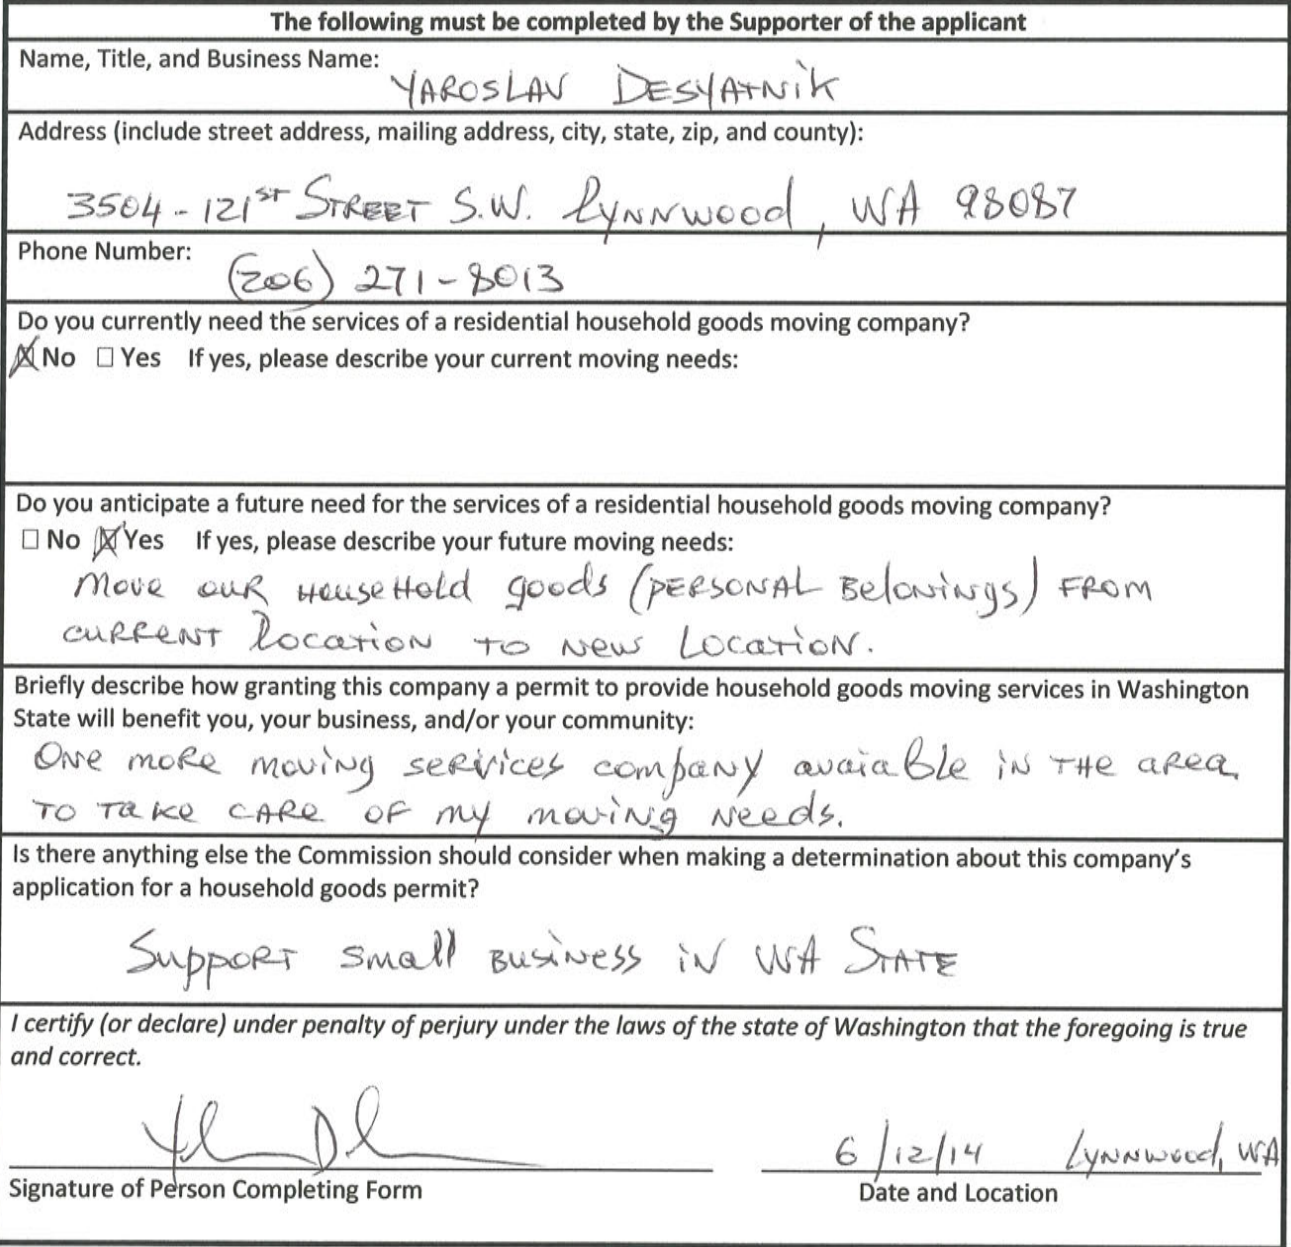 The following must be completed by the Supporter of the applicant
Name, Title, and Business Name:
YAROSLAV DESYATNiK
Address (include street address, mailing address, city, state, zip, and county):
3504 - 121ST STREET S.W. Lynnwood, WA 98087
Phone Number:
(206) 271-8013
Do you currently need the services of a residential household goods moving company?
☒ No ☐ Yes If yes, please describe your current moving needs:
Do you anticipate a future need for the services of a residential household goods moving company?
☐ No ☒ Yes If yes, please describe your future moving needs:
Move our Household goods (PERSONAL Belonings) FROM
CURRENT Location TO New Location.
Briefly describe how granting this company a permit to provide household goods moving services in Washington
State will benefit you, your business, and/or your community:
One more moving services company avaiable in THE area,
TO Take CARe OF my moving Needs.
Is there anything else the Commission should consider when making a determination about this company's
application for a household goods permit?
Support small Business in WA STATE
I certify (or declare) under penalty of perjury under the laws of the state of Washington that the foregoing is true
and correct.
6/12/14 Lynnwood, WA
Signature of Person Completing Form Date and Location